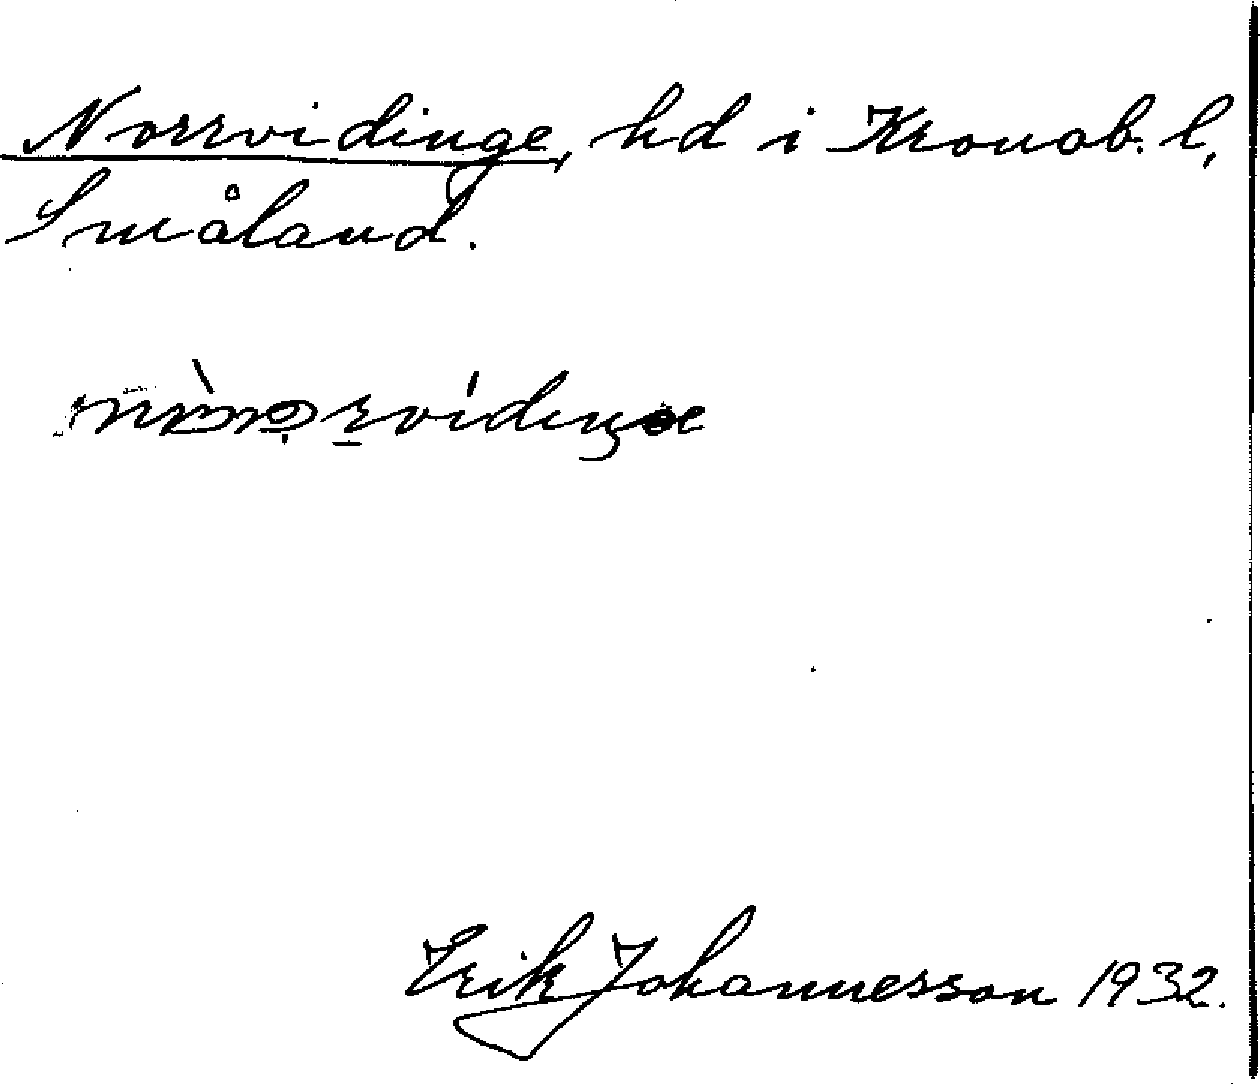 Norrvidinge, hd i Kronob. l,
Småland.
Erik Johannesson 1932.